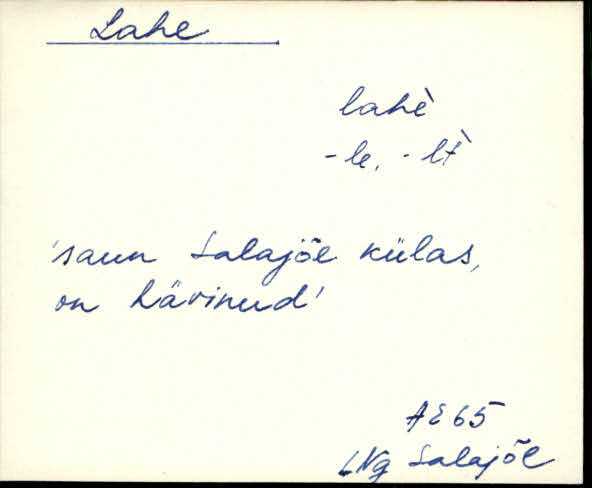 Lahe
lahè
-le, -lt̀
'saun Salajõe külas,
on hävinud'
AE65
LNg Salajõe